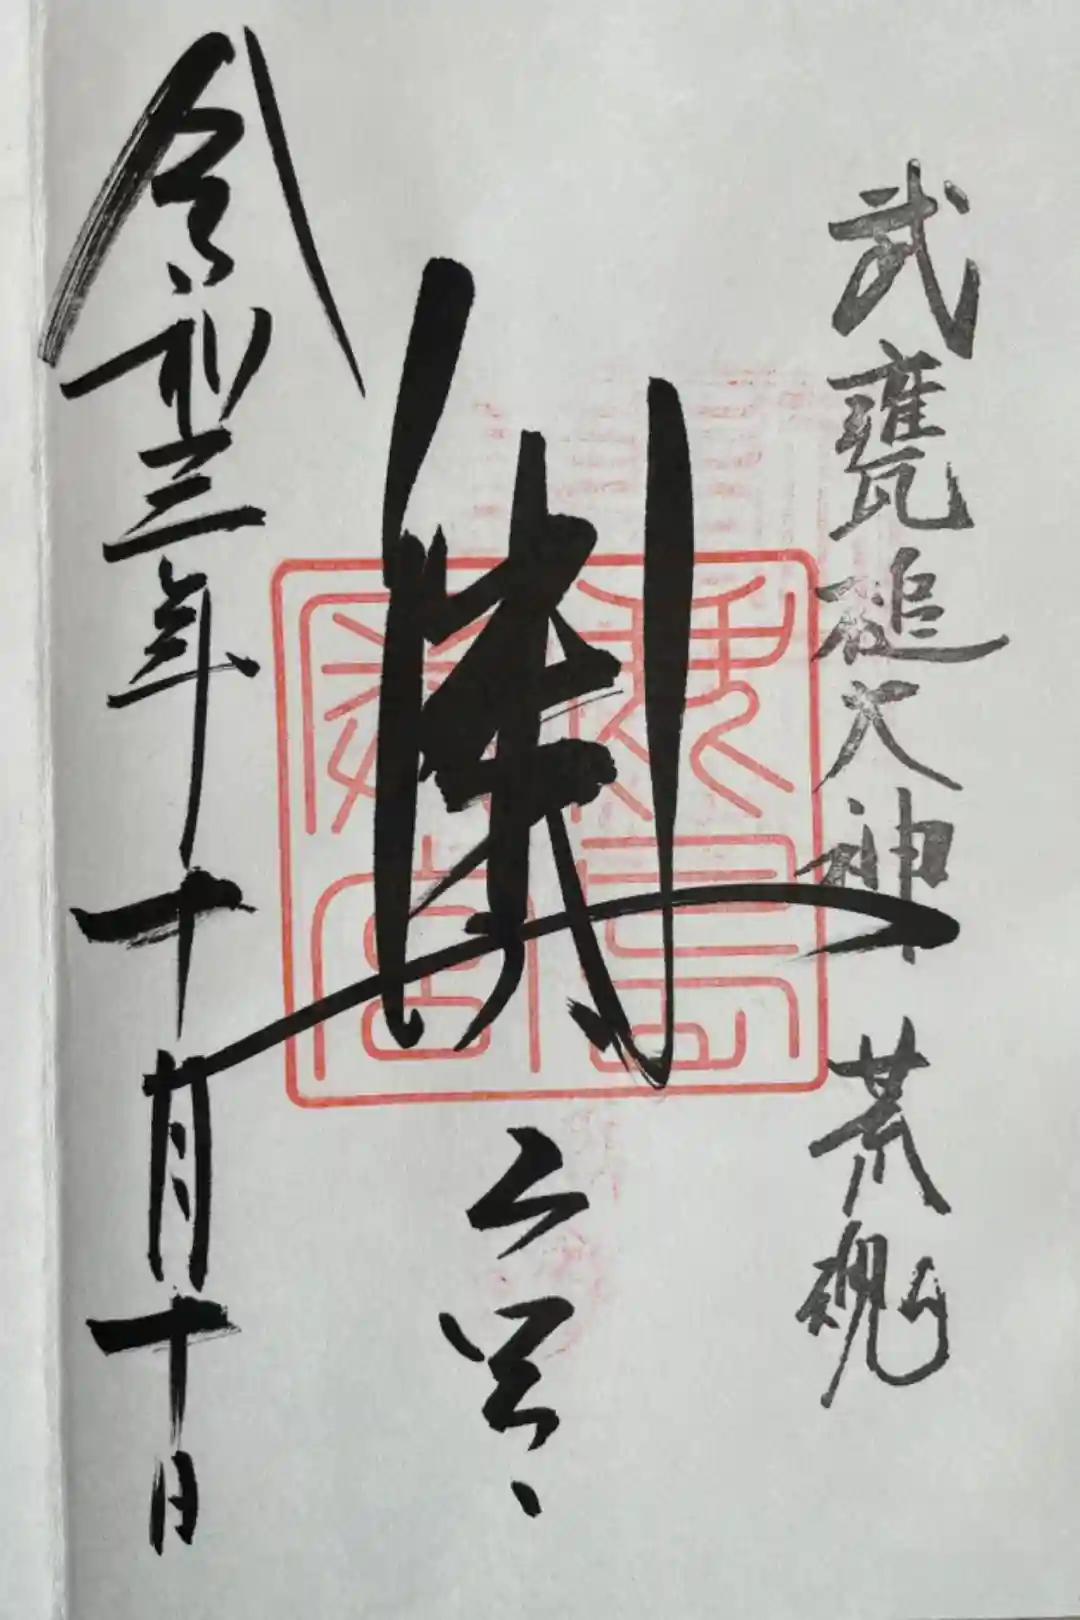 武甕槌大神 荒魂
奥宮
令和三年十月十日